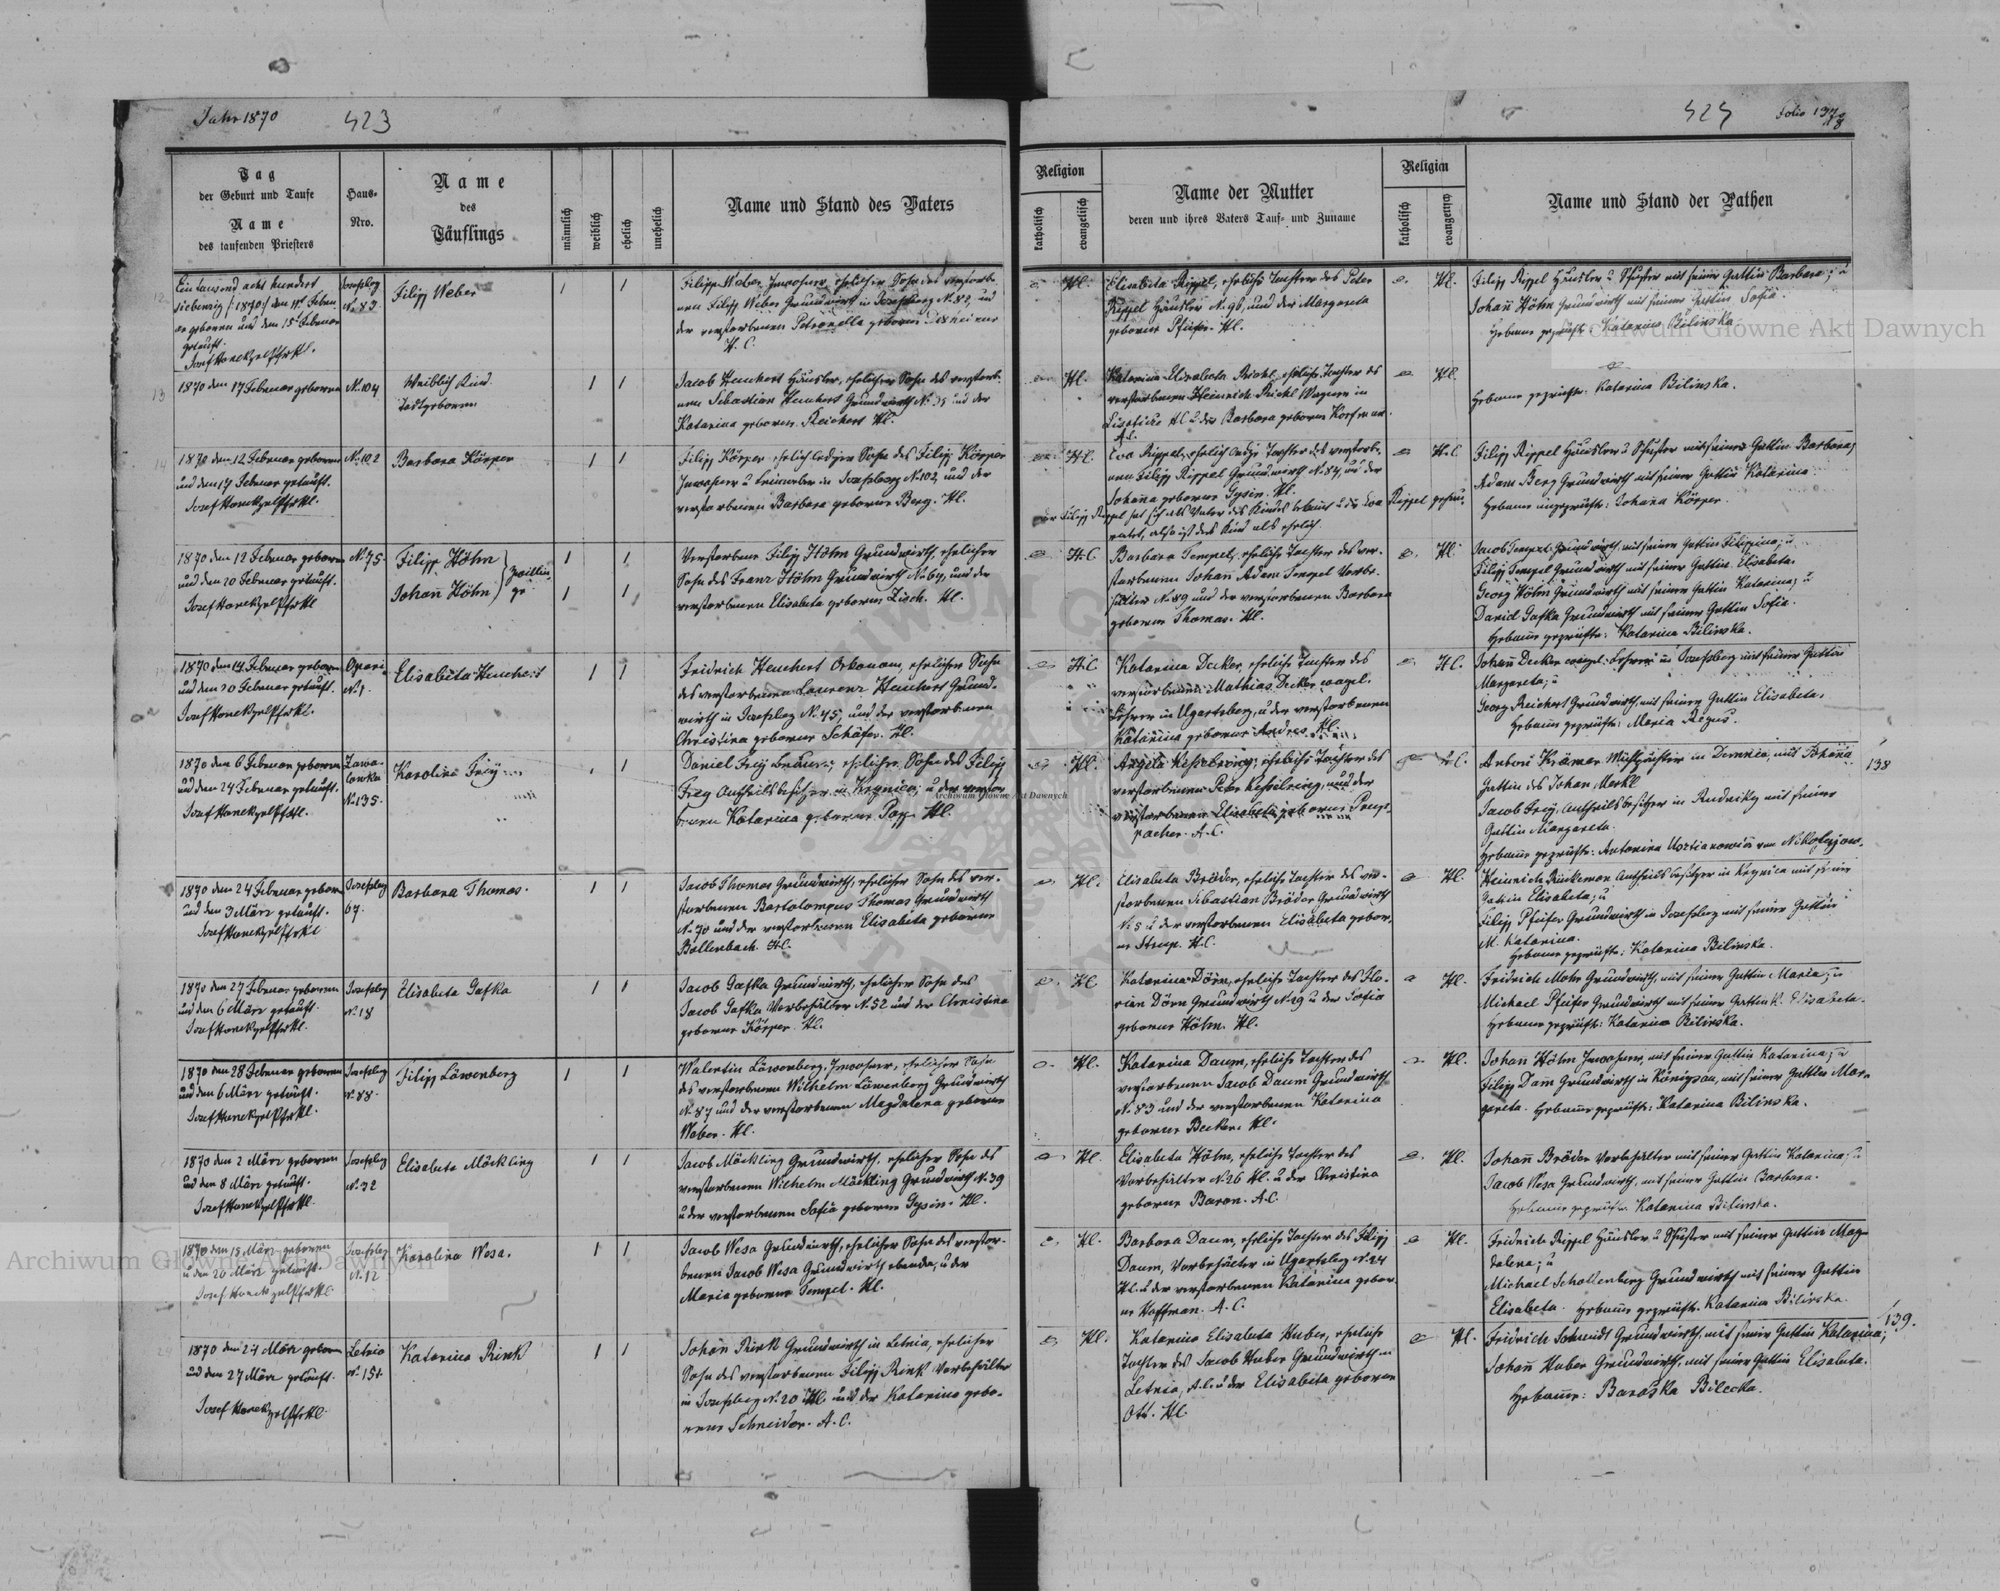 Jahr 1870
423
424
Folio 137
138
Tag
der Geburt und Taufe
Name
des taufenden Priesters
Haus-
Nro.
Name
des
Täuflings
männlich
weiblich
ehelich
unehelich
Name und Stand des Vaters
Religion
katholisch
evangelisch
Name der Mutter
deren und ihres Vaters Tauf- und Zuname
Religion
katholisch
evangelisch
Name und Stand der Pathen
Ein tausend acht hundert
siebenzig /:1870:/ den
geboren und den 15 Februar
getauft.
Josefsberg
N. 83
Filipp Weber
Filipp Weber Inwohner, ehelicher Sohn des verstorbe-
nen Filipp Weber Grundwirth in Josefsberg N. 82, und
der verstorbenen Petronella geborne
H. C.
Elisabeta Rippel, eheliche Tochter des Peter
Rippel Häusler N. 96, und der Margareta
geborne Pfeifer. Hl.
Filipp Rippel Häusler u Schuster mit seiner Gattin Barbara; u
Johañ Höhn Grundwirth mit seiner Gattin Sofia.
Hebame geprüfte: Katarina Bilinska
1870 den 17 Februar geboren
N. 104
Weiblich Kind
Todtgeboren
Jacob Heuchert Häusler, ehelicher Sohn des verstorb-
nen Sebastian Heuchert Grundwirth N. 35 und der
Katarina geborne Reichert Hl.
Katarina Elisabeta Richl, eheliche Tochter des
verstorbenen Heinrich Richl Wagner in
A C u der Barbara geborne
A. C.
Hebame geprüfte: Katarina Bilinska.
1870 den 12 Februar geboren
und den 17 Februar getauft.
N. 102
Barbara Körper
Filipp Körper ehelich lediger Sohn des Filipp Körper
Inwohner u Leinweber in Josefsberg N. 102, und der
verstorbenen Barbara geborne Berg. Hl.
Eva Rippel, ehelich ledige Tochter des verstorb-
nen Filipp Rippel Grundwirth N. 84, und der
Johaña geborne Gysin. Hl.
Filipp Rippel Häusler u Schuster mit seiner Gattin Barbara;
Adam Berg Grundwirth mit seiner Gattin Katarina
Hebame ungeprüfte: Johaña Körper.
1870 den 12 Februar geboren
und den 20 Februar getauft.
N. 75
Filipp Höhn
Johañ Höhn
Zwillin-
ge
Verstorbene Filipp Höhn Grundwirth, ehelicher
Sohn des Franz Höhn Grundwirth N. 64, und der
verstorbenen Elisabeta geborne Zisch. Hl.
Barbara Tempel, eheliche Tochter des ver-
storbenen Johañ Adam Tempel Vorbe-
hälter N. 89 und der verstorbenen Barbara
geborne Thomas. Hl.
Jacob Tempel Grundwirth mit seiner Gattin Filippina; u
Filipp Tempel Grundwirth mit seiner Gattin Elisabeta.
Georg Höhn Grundwirth mit seiner Gattin Katarina; u
David Gafka Grundwirth mit seiner Gattin Sofia.
Hebame geprüfte: Katarina Bilinska.
1870 den 14 Februar geboren
und den 20 Februar getauft.
Opari
N. 1.
Elisabeta Heuchert
Fridrich Heuchert Oekonom, ehelicher Sohn
des verstorbenen Laurenz Heuchert Grund-
wirth in Josefsberg N. 45, und der verstorbenen
Christina geborne Schäfer. Hl.
Katarina Decker, eheliche Tochter des
verstorbenen Mathias Decker evagel.
Lehrer in Ugartsberg, u der verstorbenen
Katarina geborne Andres. Hl.
Johañ Decker evagel: Lehrer in Josefsberg mit seiner Gattin
Margareta; u
Georg Reichert Grundwirth mit seiner Gattin Elisabeta.
Hebame geprüfte: Maria Regus.
1870 den 6 Februar geboren
und den 24 Februar getauft.
N. 135.
Karolina Frey
Daniel Frey Bräuer, ehelicher Sohn des Filipp
Frey Antheilsbesitzer in Krynica; u der verstor-
benen Katarina geborne Popp Hl.
Angela Kesselring, eheliche Tochter des
verstorbenen Peter Kesselring, und der
verstorbenen Elisabeta geborne
A. C.
Krämer Mühlpächter in Demnia, mit Johaña
Gattin des Johan Merkl
Jacob Frey, Antheilsbesitzer in Rudniky mit seiner
Gattin Margareta.
138
1870 den 24 Februar geboren
und den 3 März getauft.
Josefsberg
67.
Barbara Thomas.
Jacob Thomas Grundwirth, ehelicher Sohn des ver-
storbenen Bartolomeus Thomas Grundwirth
N. 70 und der verstorbenen Elisabeta geborne
Bollenbach. Hl.
Elisabeta Bröder, eheliche Tochter des ver-
storbenen Sebastian Bröder Grundwirth
N. 5 u der verstorbenen Elisabeta gebor-
ne Stump. H. C.
Heinrich Rinkeman Antheilsbesitzer in Krynica mit seiner
Gattin Elisabeta; u
Filipp Pfeifer Grundwirth in Josefsberg mit seiner Gattin
M. Katarina.
Hebame geprüfte: Katarina Bilinska.
1870 den 27 Februar geboren
und den 6 März getauft.
Josefsberg
N. 18
Elisabeta Gafka
Jacob Gafka Grundwirth, ehelicher Sohn des
Jacob Gafka Vorbehälter N. 52 und der Christina
geborne Körper. Hl.
Katarina Dörn, eheliche Tochter des Flo-
rian Dörn Grundwirth N. 19 u der Sofia
geborne Höhn. Hl.
Fridrich Mohr Grundwirth, mit seiner Gattin Maria; u
Michael Pfeifer Grundwirth mit seiner Gattin K. Elisabeta.
Hebame geprüfte: Katarina Bilinska.
1870 den 28 Februar geboren
und den 6 März getauft.
Josefsberg
N. 88.
Filipp Löwenberg
Walentin Löwenberg, Inwohner, ehelicher Sohn
des verstorbenen Wilhelm Löwenberg Grundwirth
N. 87 und der verstorbenen Magdalena geborne
Weber. Hl.
Katarina Daum, eheliche Tochter des
verstorbenen Jacob Daum Grundwirth
N. 83 und der verstorbenen Katarina
geborne Becker. Hl.
Johañ Höhn Inwohner, mit seiner Gattin Katarina; u
Filipp Dam Grundwirth in Königsau, mit seiner Gattin Mar-
gareta. Hebame geprüfte: Katarina Bilinska.
1870 den 2 März geboren
und den 8 März getauft.
Josefsberg
N. 32
Elisabeta Möckling
Jacob Möckling Grundwirth, ehelicher Sohn des
verstorbenen Wilhelm Möckling Grundwirth N. 39
u der verstorbenen Sofia geborne Gysin. Hl.
Elisabeta Höhn, eheliche Tochter des
Vorbehälter N. 26 Hl. u der Christina
geborne Baron. A. C.
Johañ Bröder Vorbehälter mit seiner Gattin Katarina; u
Jacob Wesa Grundwirth, mit seiner Gattin Barbara.
Hebame geprüfte: Katarina Bilinska.
1870 den 15 März geboren
u den 20 März getauft.
Josefsberg
N. 12
Karolina Wesa.
Jacob Wesa Grundwirth, ehelicher Sohn des verstor-
benen Jacob Wesa Grundwirth ebenda, u der
Maria geborne Tempel. Hl.
Barbara Daum, eheliche Tochter des Filipp
Daum, Vorbehälter in Ugartsberg N. 24
Hl. u der verstorbenen Katarina gebor-
ne Hoffman. A. C.
Fridrich Rippel Häusler u Schuster mit seiner Gattin Mag-
dalena; u
Michael Schollenberg Grundwirth mit seiner Gattin
Elisabeta. Hebame geprüfte: Katarina Bilinska.
139.
1870 den 24 März geboren
und den 27 März getauft.
Letnia
N. 151.
Katarina Rink
Johañ Rink Grundwirth in Letnia, ehelicher
Sohn des verstorbenen Filipp Rink Vorbehälter
in Josefsberg N. 20 Hl. und der Katarina gebo-
rene Schneider. A. C.
Katarina Elisabeta Huber, eheliche
Tochter des Jacob Huber Grundwirth in
Letnia, A.C. u der Elisabeta geborne
Ott. Hl.
Fridrich Schmidt Grundwirth, mit seiner Gattin Katarina;
Johañ Huber Grundwirth, mit seiner Gattin Elisabeta.
Hebame: Baraska Bilecka.
Archiwum Główne Akt Dawnych
Archiwum Główne Akt Dawnych
Archiwum Główne Akt Dawnych